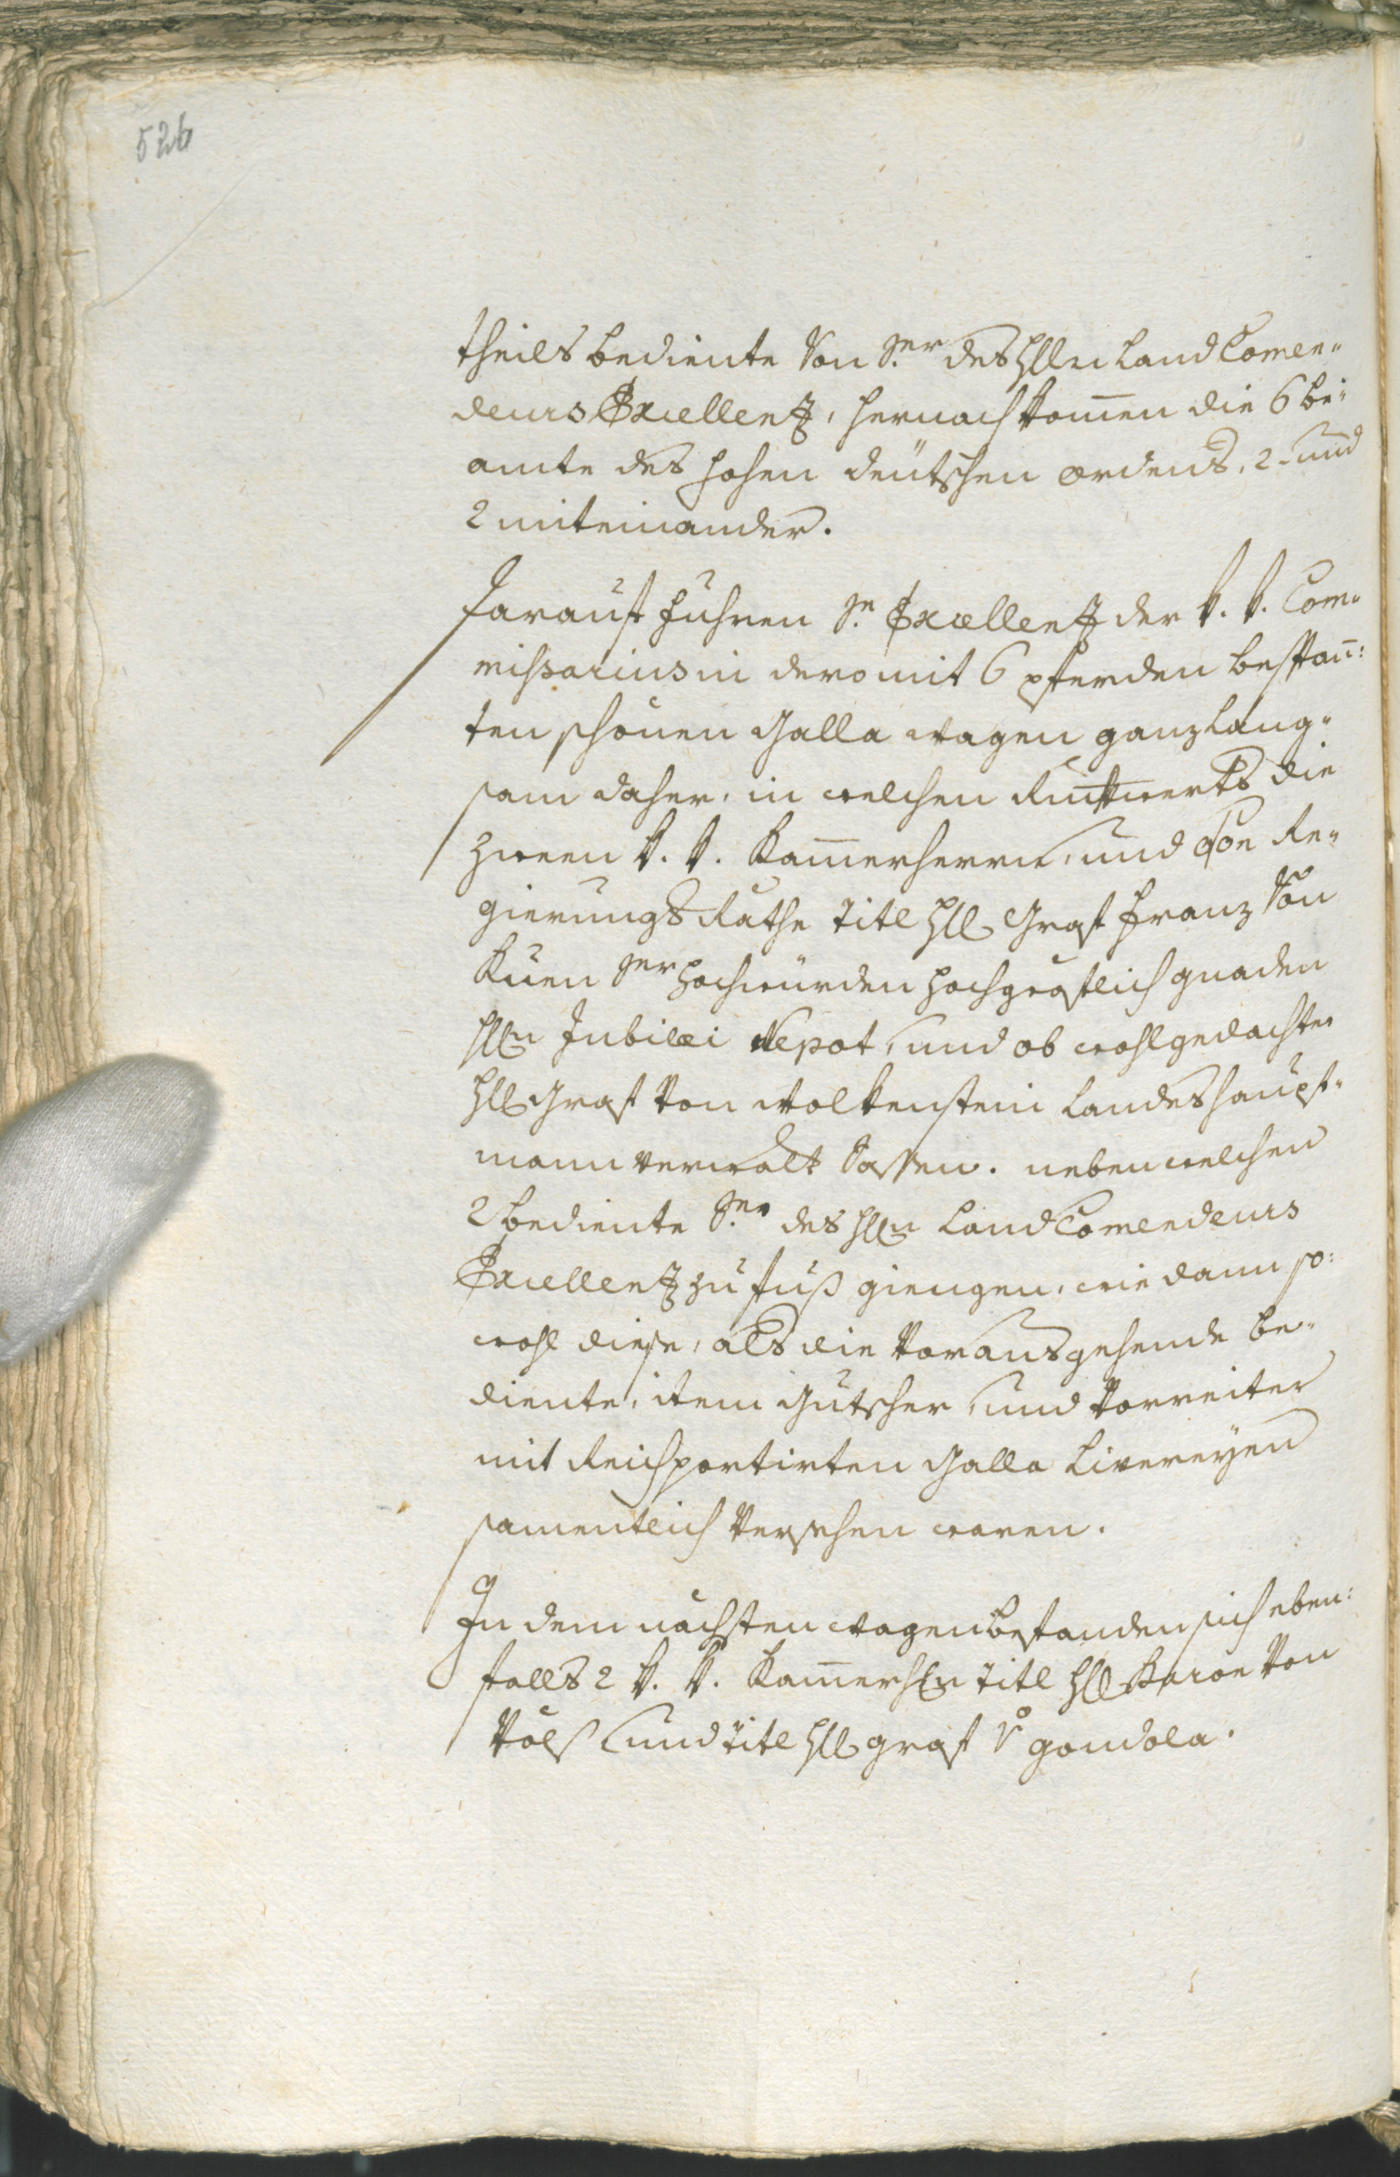 526
theils bediente Von Sr. des H. LandComen-
deurs Excellentz, hernach kommen die 6 be-
amte des hohen deütschen ordens, 2. und
2 miteinander.
Darauf fuhren Sr. Excellentz der k. k. Com-
missarius in dero mit 6 pferden bespan:
ten schönen Galla wagen ganz lang-
sam daher, in welchen Ruckwerts die
zween k. k. Kammerherrn, und Re-
gierungs Räthe Titl H. Graf Franz Von
Kuen Sr. hochwürden hochgräflich gnaden
H. Jubilæi Nepot, und ob wohlgedachter
H. Graf Von Wolkenstein Landeshaupt-
mannverwalt Sassen. neben welchen
2 bediente Sr. des H. LandComendeurs
Excellentz zu fuß giengen, wie dann so:
wohl diese, als die Vorausgehende be-
diente, item Gutscher, und Vorreiter
mit Reich portirten Galla Livereyen
samentlich Versehen waren.
In dem nächsten wagen befanden sich eben:
falls 2 k. k. Kammerh. Titl H. Baron Von
Völs und Titl H. graf V. gondola.